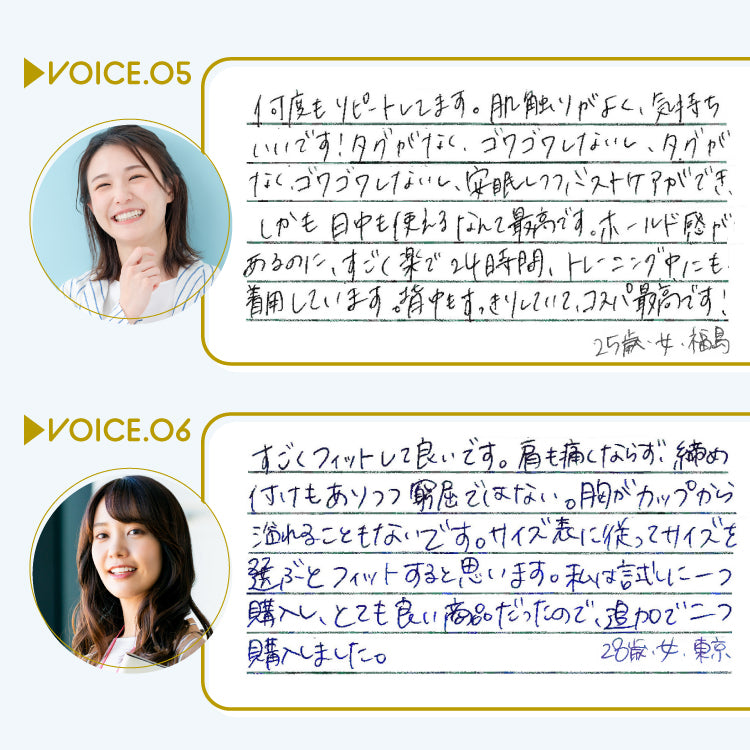 VOICE.05
何度もリピートしてます。肌触りがよく、気持ち
いいです！タグがなく、ゴワゴワしないし、タグが
なく、ゴワゴワしないし、安眠しつつ、バストケアができ、
しかも日中も使えるなんて最高です。ホールド感が
あるのに、すごく楽で24時間、トレーニング中にも
着用しています。背中もすっきりしていて、コスパ最高です！
25歳、女、福島
VOICE.06
すごくフィットして良いです。肩も痛くならず、締め
付けもありつつ窮屈ではない。胸がカップから
溢れることもないです。サイズ表に従ってサイズを
選ぶとフィットすると思います。私は試しに一つ
購入し、とても良い商品だったので、追加で二つ
購入しました。
28歳、女、東京